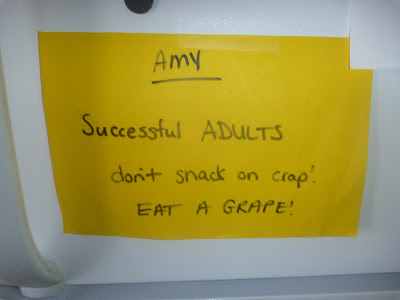 AMY
Successful ADULTS
don't snack on crap!
EAT A GRAPE!